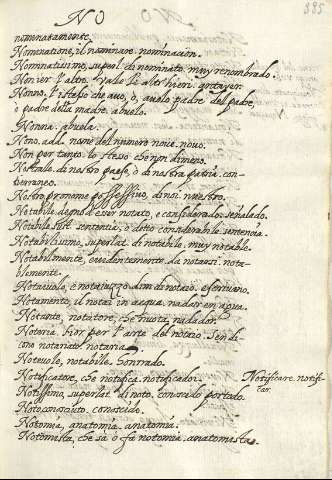 N O
395
nominatamente.
Nominatione, il nominare. nominacion.
Nominatissimo, superl. di nominato. muy renombrado.
Non ier l'altro. Vale l'altrhieri. antayer.
Nonno, l'istesso che avo, ò, avolo padre del padre,
ò padre della madre. abuelo.
Nonna. abuela.
Nono, add. nome del numero nove. nono.
Non per tanto. lo stesso che non dimeno.
Nostrale. di nostro paese, ò di nostra patria. con-
terraneo.
Nostro pronome possessivo, di noi. nuestro.
Notabile. degno d'esser notato, e considerado. señalado.
Notabile. sust. sentenza, ò detto considerabile. sentencia.
Notabilissimo, superlat. di notabile. muy notable.
Notabilmente, evidentemente, da notarsi. nota-
blemente.
Notaiuolo, e notaiuzzo. dim. di notaio. escrivano.
Notamento, il notar in acqua. nadar en agua.
Notante, notatore, che nuota. nadador.
Notaria, hor per l'arte del notaio. Se'n di-
cono notariato. notaria.
Notevole, notabile. honrado.
Notificatore, che notifica. notificador.
Notificare. notifi-
car.
Notissimo, superlat. di noto. conoscido portado.
Noto conosciuto. conoscido.
Notomia, anatomia. anatomia.
Notomista, che sà ò fà notomia. anatomista.